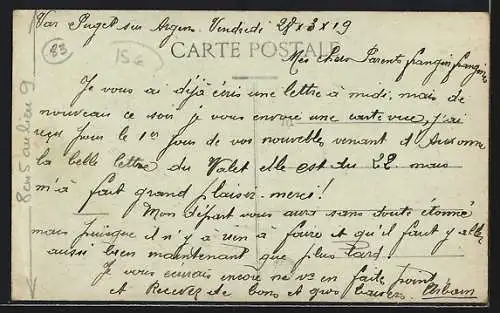 Var Puget sur Argens. Vendredi 28 x 3 x 19
83
15 €
CARTE POSTALE
Mes chers Parents frangin frangines
Je vous ai déjà écris une lettre à midi, mais de
nouveau ce soir je vous envoie une carte vue, j'ai
reçus pour le 1er jour de vos nouvelles venant d'Auxonne
la belle lettre du Valet elle est du 22 mais
m'a fait grand plaisir. merci!
Mon départ vous aura sans doute étonné
mais puisque il n'y a rien à faire et qu'il faut y aller
aussi bien maintenant que plus tard
Je vous écrirais encore ne vs en faite point
et Recevez de bons et gros baisers. Urbain
8 en 5 au lieu 9